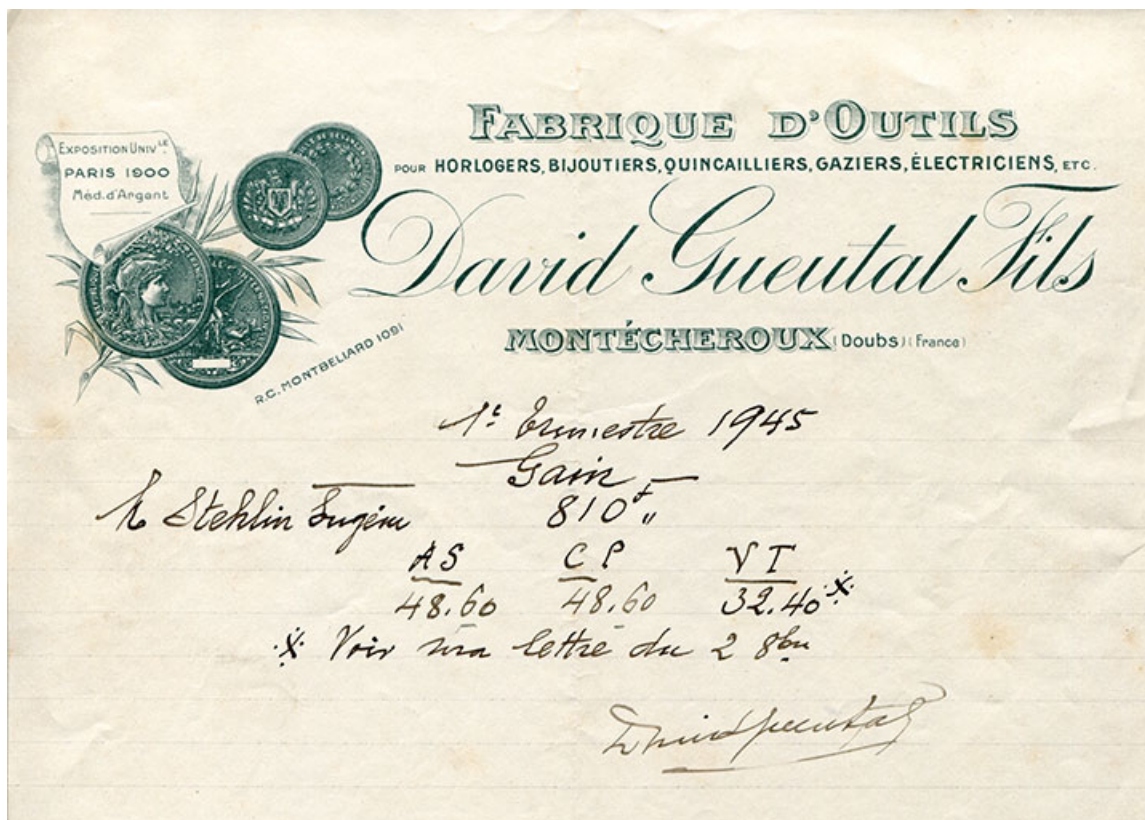 EXPOSITION UNIV.LE
PARIS 1900
Méd. d'Argent
FABRIQUE D'OUTILS
POUR HORLOGERS, BIJOUTIERS, QUINCAILLIERS, GAZIERS, ÉLECTRICIENS, ETC.
David Gueutal Fils
MONTÉCHEROUX (Doubs) (France)
R.C. MONTBELIARD 1091
1e Trimestre 1945
Gain
M Stehlin Eugène 810f "
AS CP VT
48.60 48.60 32.40 ※
※ Voir ma lettre du 2 8bre
David Gueutal